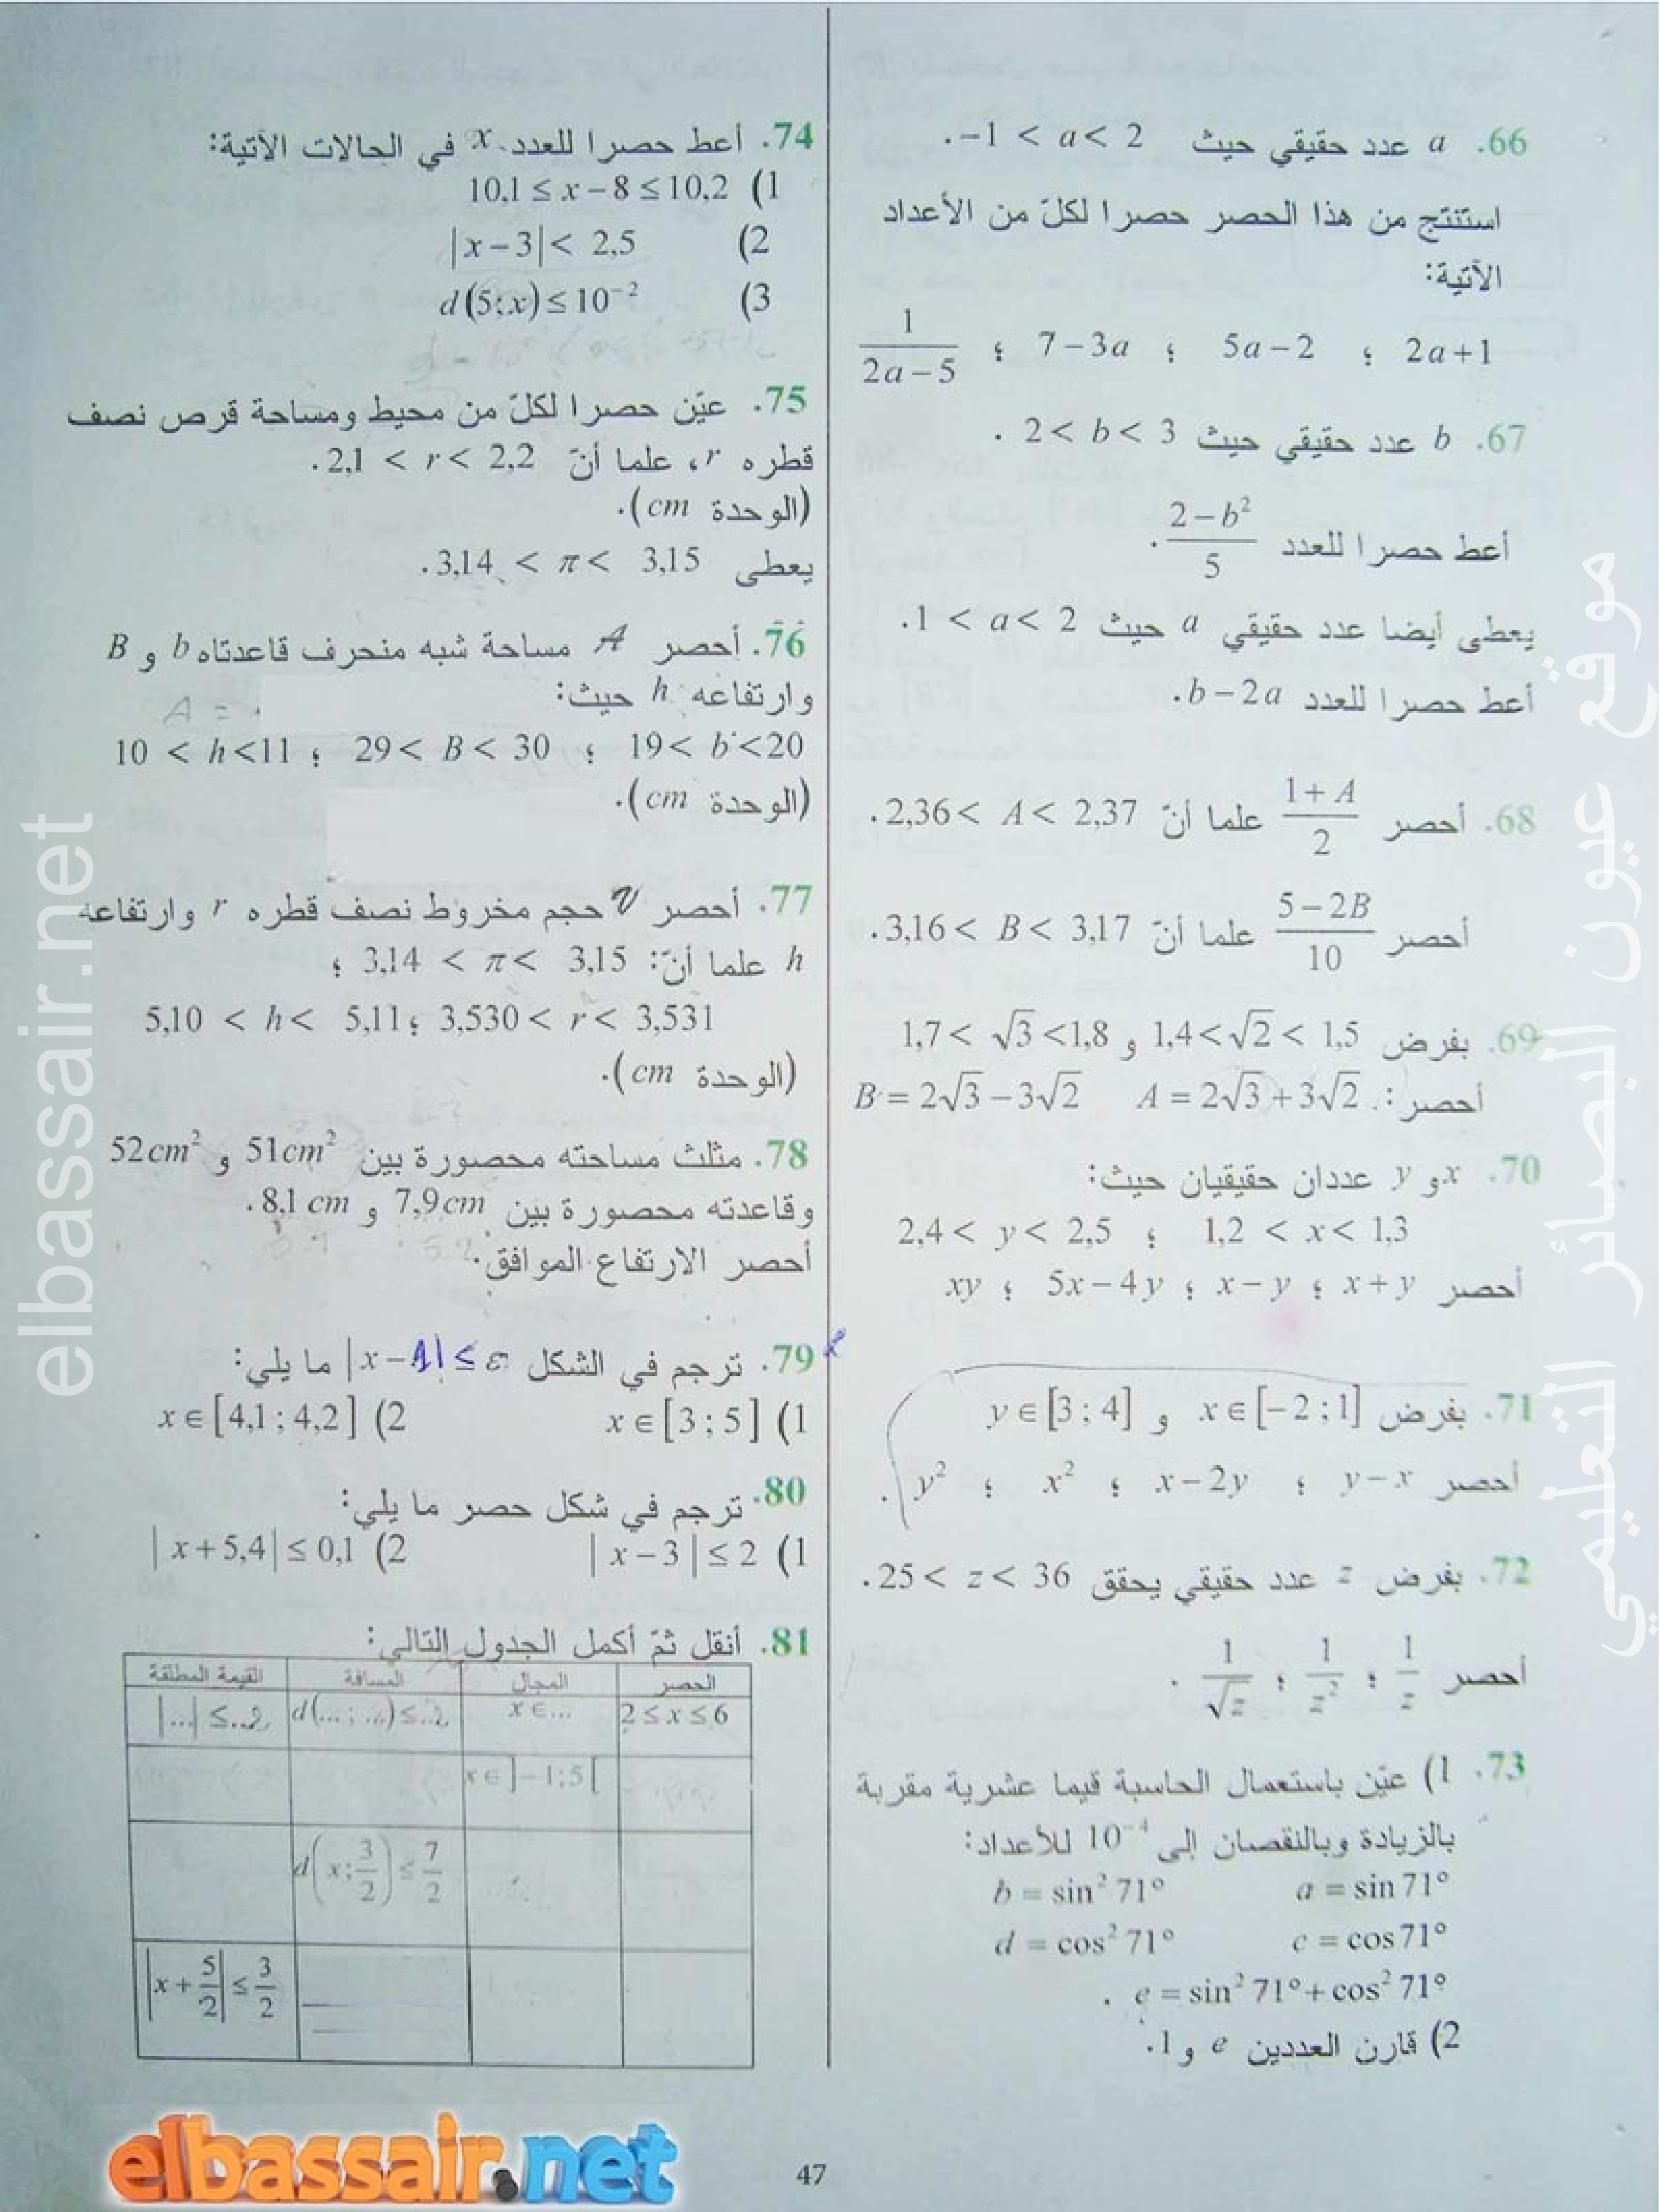 66. a عدد حقيقي حيث -1 < a < 2.
استنتج من هذا الحصر حصرا لكلّ من الأعداد
الآتية:
2a+1 ؛ 5a-2 ؛ 7-3a ؛ 1/(2a-5)
67. b عدد حقيقي حيث 2 < b < 3.
أعط حصرا للعدد (2-b²)/5.
يعطى أيضا عدد حقيقي a حيث 1 < a < 2.
أعط حصرا للعدد b-2a.
68. أحصر (1+A)/2 علما أنّ 2,36 < A < 2,37.
أحصر (5-2B)/10 علما أنّ 3,16 < B < 3,17.
69. بفرض 1,4 < √2 < 1,5 و 1,7 < √3 < 1,8
أحصر: A = 2√3+3√2 B = 2√3-3√2
70. x و y عددان حقيقيان حيث:
1,2 < x < 1,3 ؛ 2,4 < y < 2,5
أحصر x+y ؛ x-y ؛ 5x-4y ؛ xy
71. بفرض x∈[-2;1] و y∈[3;4]
أحصر y-x ؛ x-2y ؛ x² ؛ y².
72. بفرض z عدد حقيقي يحقق 25 < z < 36.
أحصر 1/z ؛ 1/z² ؛ 1/√z.
73. 1) عيّن باستعمال الحاسبة قيما عشرية مقربة
بالزيادة وبالنقصان إلى 10⁻⁴ للأعداد:
a = sin 71° b = sin² 71°
c = cos 71° d = cos² 71°
e = sin² 71° + cos² 71°.
2) قارن العددين e و 1.
74. أعط حصرا للعدد x في الحالات الآتية:
1) 10,1 ≤ x-8 ≤ 10,2
2) |x-3| < 2,5
3) d(5;x) ≤ 10⁻²
75. عيّن حصرا لكلّ من محيط ومساحة قرص نصف
قطره r، علما أنّ 2,1 < r < 2,2.
(الوحدة cm).
يعطى 3,14 < π < 3,15.
76. أحصر A مساحة شبه منحرف قاعدتاه b و B
وارتفاعه h حيث:
A =
19 < b < 20 ؛ 29 < B < 30 ؛ 10 < h < 11
(الوحدة cm).
77. أحصر V حجم مخروط نصف قطره r وارتفاعه
h علما أنّ: 3,14 < π < 3,15 ؛
3,530 < r < 3,531 ؛ 5,10 < h < 5,11
(الوحدة cm).
78. مثلث مساحته محصورة بين 51cm² و 52cm²
وقاعدته محصورة بين 7,9cm و 8,1 cm.
أحصر الارتفاع الموافق.
79. ترجم في الشكل |x-1| ≤ ε ما يلي:
1) x∈[3;5] 2) x∈[4,1;4,2]
80. ترجم في شكل حصر ما يلي:
1) |x-3| ≤ 2 2) |x+5,4| ≤ 0,1
81. أنقل ثمّ أكمل الجدول التالي:
الحصر المجال المسافة القيمة المطلقة
2 ≤ x ≤ 6 x∈... d(...;...) ≤ ..2 |...| ≤ ..2
x∈]-1;5[
d(x;3/2) ≤ 7/2
|x+5/2| ≤ 3/2
47
elbassair.net
elbassair.net
موقع عيون البصائر التعليمي